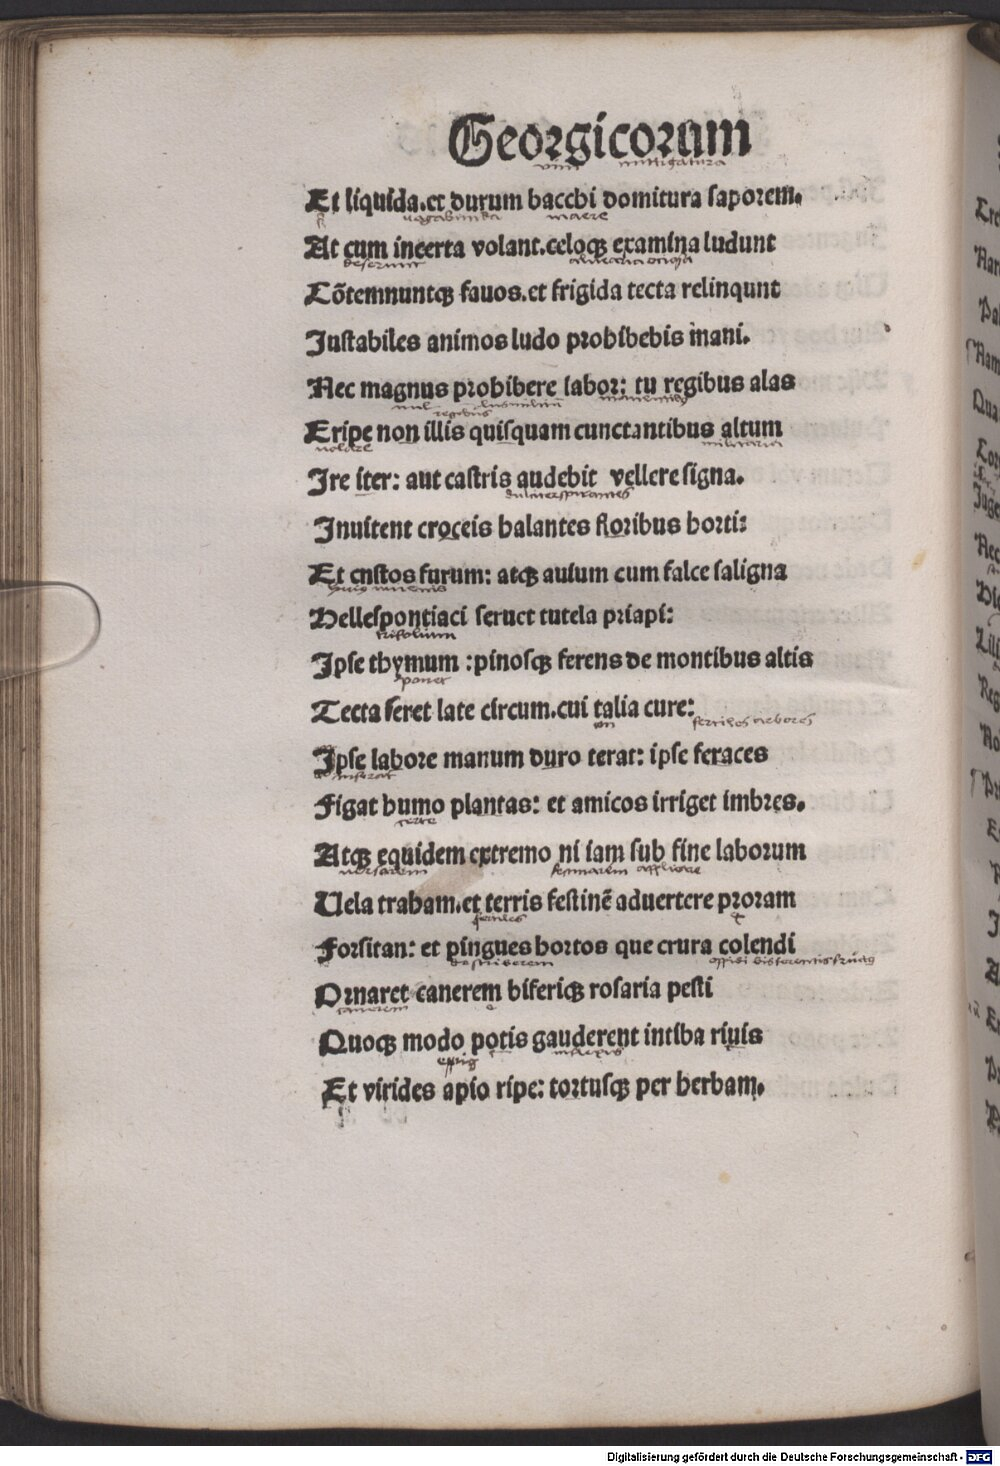 Georgicorum
vini mittigatura
Et liquida.et durum bacchi domitura saporem.
vagabunda
At cum incerta volant.celoqꝫ examina ludunt
deserunt
Cõtemnuntqꝫ fauos.et frigida tecta relinqunt
Instabiles animos ludo prohibebis inani.
Nec magnus prohibere labor: tu regibus alas
regibus
Eripe non illis quisquam cunctantibus altum
volare militaria
Ire iter: aut castris audebit vellere signa.
Inuitent croceis balantes floribus horti:
Et cnstos furum: atqꝫ auium cum falce saligna
Hellespontiaci seruet tutela priapi:
trifolium
Ipse thymum :pinosqꝫ ferens de montibus altis
ponet
Tecta seret late circum.cui talia cure:
fertiles arbores
Ipse labore manum duro terat: ipse feraces
Figat humo plantas: et amicos irriget imbres.
certe
Atqꝫ equidem extremo ni iam sub fine laborum
versarem festinarem
Uela traham.et terris festinẽ aduertere proram
fertiles
Forsitan: et pingues hortos que crura colendi
describerem
Ornaret canerem biferiqꝫ rosaria pesti
canerem
Quoqꝫ modo potis gauderent intiba riuis
Et virides apio ripe: tortusqꝫ per herbam.
Digitalisierung gefördert durch die Deutsche Forschungsgemeinschaft - DFG